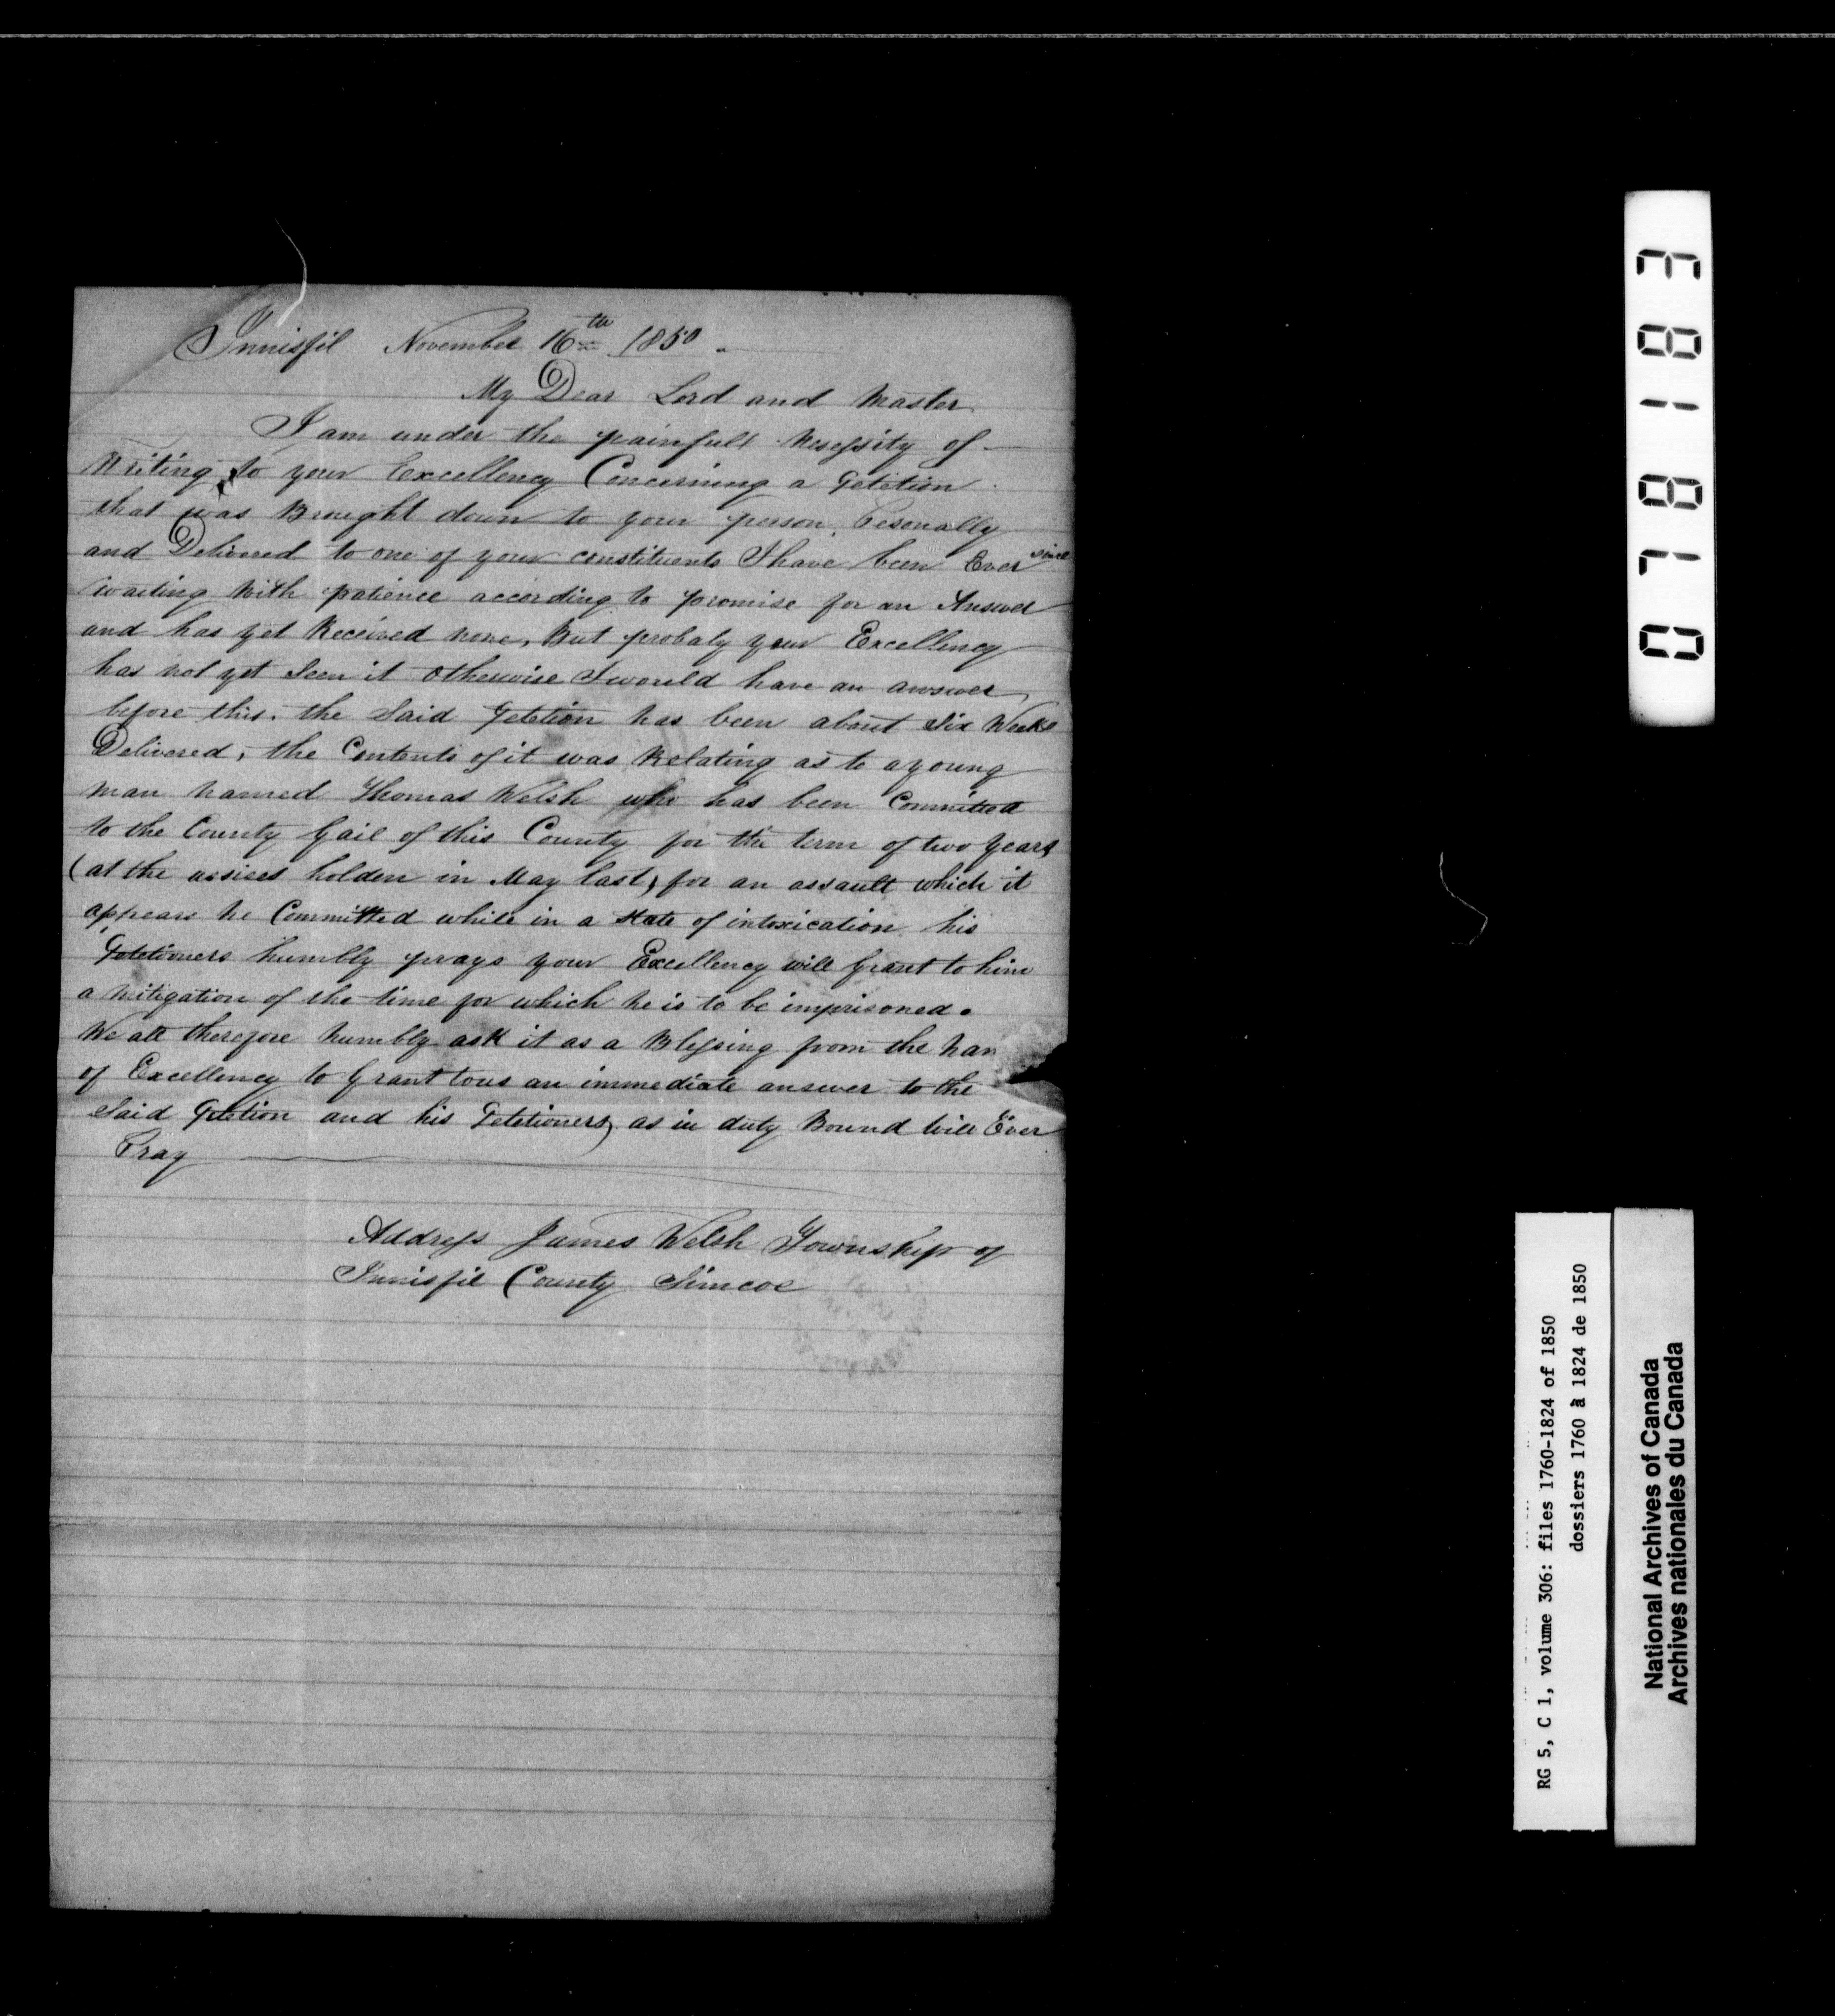 Innisfil November 16th 1850.
My Dear Lord and Master
I am under the painfull Nesessity of
Writing to your Excellency Concerning a Petetion
that was Brought down to your person Pesonally
and Delivered to one of your constituents I have been Ever since
waiting With patience according to promise for an Answer
and has yet Received none, But probaly your Excellency
has not yet Seen it Otherwise I would have an answer
before this. the Said Petetion has been about Six Weeks
Delivered, the Contents of it was Relating as to a young
man named Thomas Welsh who has been Committed
to the County Gail of this County for the term of two years
(at the assises holden in May last, for an assault which it
appears he Committed while in a State of intoxication his
Petetioners humbly prays your Excellency will Grant to him
a mitigation of the time for which he is to be imprisoned.
We all therefore humbly ask it as a Blessing from the han
of Excellency to Grant to us an immediate answer to the
Said Petetion and his Petetioners, as in duty Bound will Ever
Pray
Address James Welsh Township of
Innisfil County Simcoe
078183
RG 5, C 1, volume 306: files 1760-1824 of 1850
dossiers 1760 à 1824 de 1850
National Archives of Canada
Archives nationales du Canada